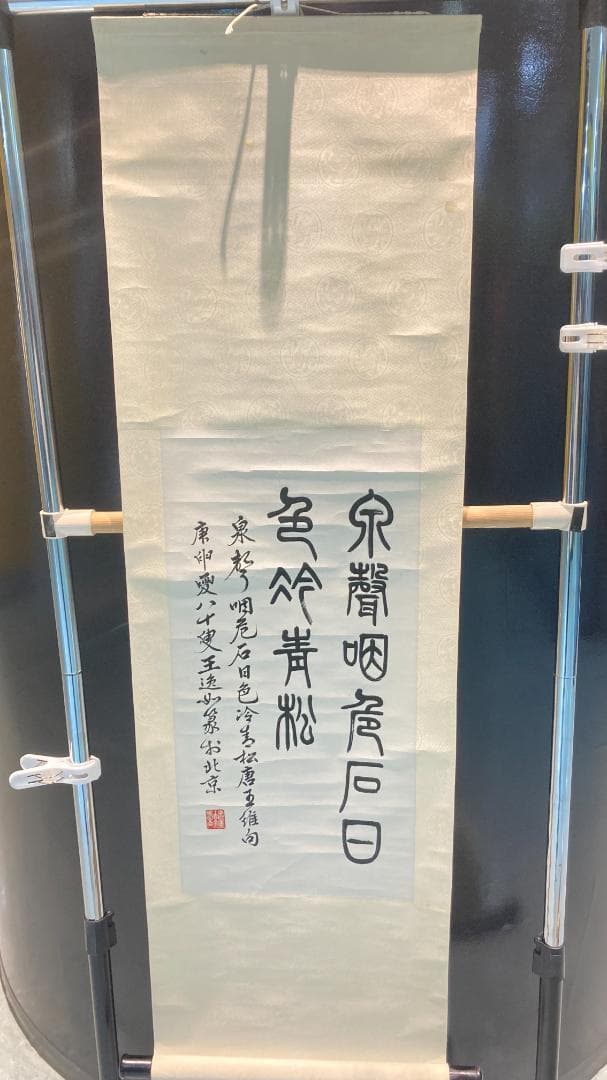 泉聲咽危石日
色冷青松
泉聲咽危石日色冷青松唐王維句
庚卯夏八十叟王逸如篆於北京